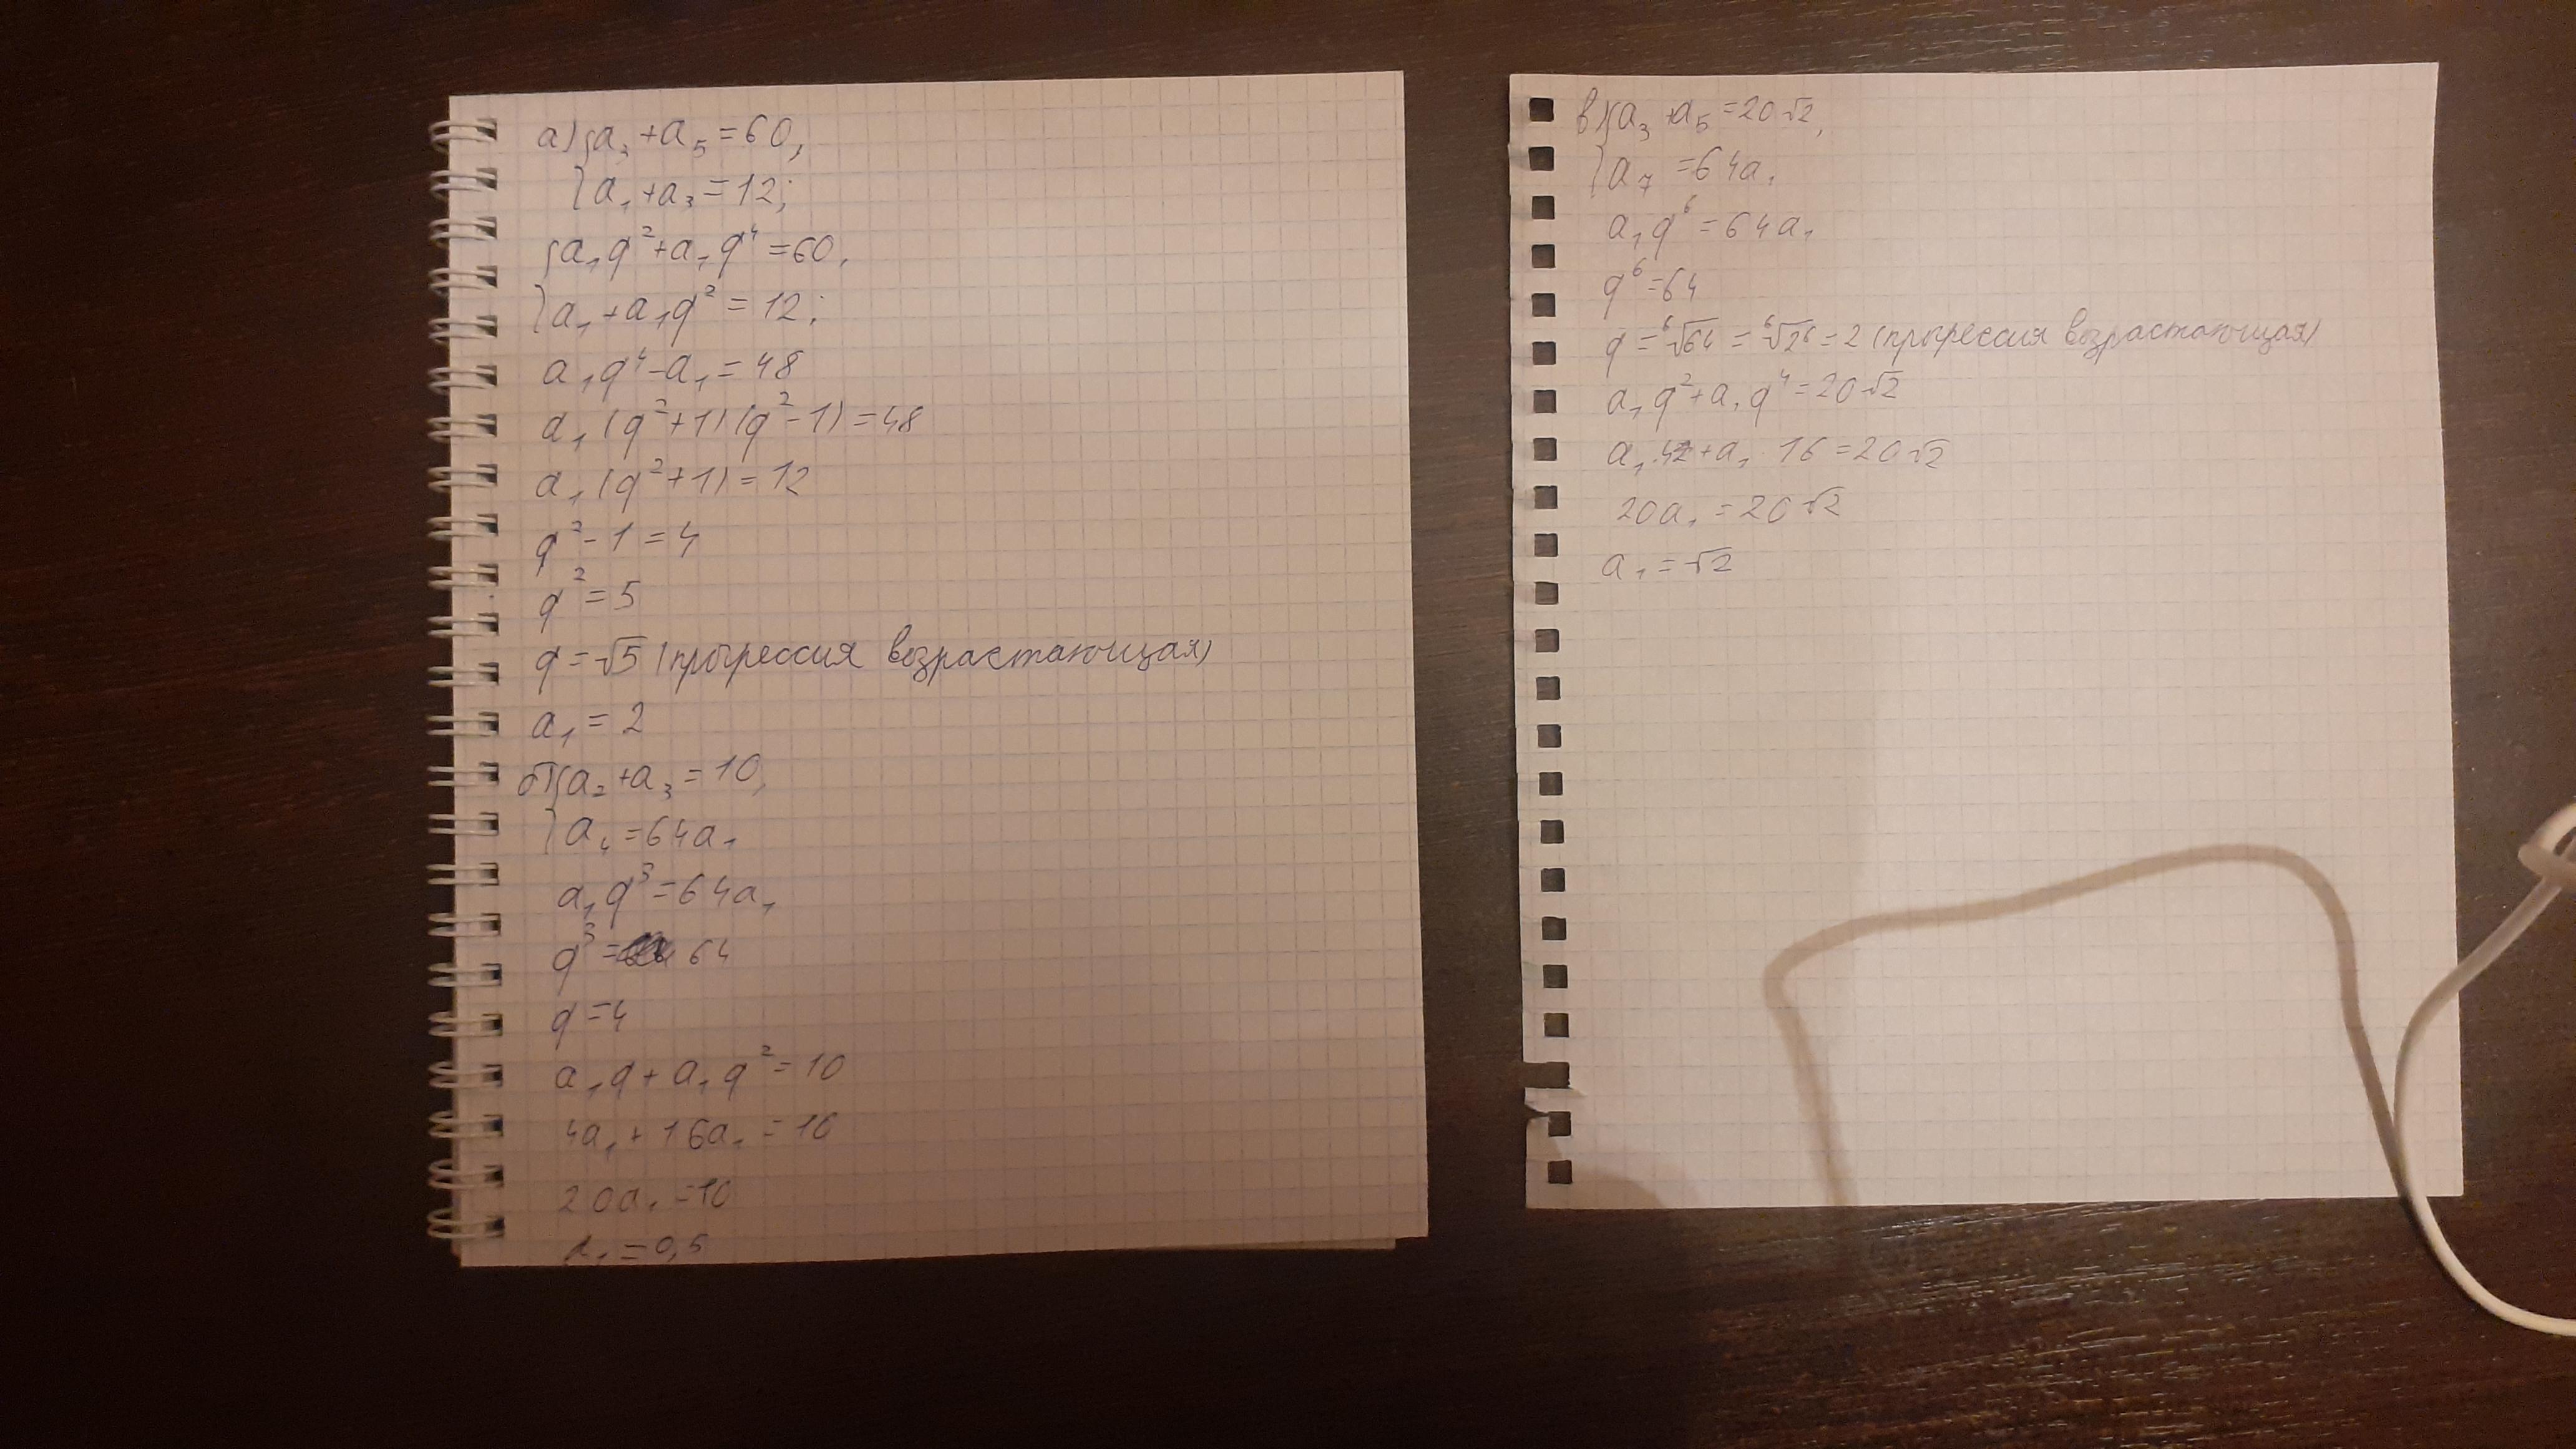 а) {a₃ + a₅ = 60,
{a₁ + a₃ = 12;
{a₁q² + a₁q⁴ = 60,
{a₁ + a₁q² = 12;
a₁q⁴ - a₁ = 48
a₁(q² + 1)(q² - 1) = 48
a₁(q² + 1) = 12
q² - 1 = 4
q² = 5
q = √5 (прогрессия возрастающая)
a₁ = 2
б) {a₂ + a₃ = 10,
{a₄ = 64a₁
a₁q³ = 64a₁
q³ = 64
q = 4
a₁q + a₁q² = 10
4a₁ + 16a₁ = 10
20a₁ = 10
a₁ = 0,5
в) {a₃ + a₅ = 20√2,
{a₇ = 64a₁
a₁q⁶ = 64a₁
q⁶ = 64
q = ⁶√64 = ⁶√2⁶ = 2 (прогрессия возрастающая)
a₁q² + a₁q⁴ = 20√2
a₁ · 4 + a₁ · 16 = 20√2
20a₁ = 20√2
a₁ = √2